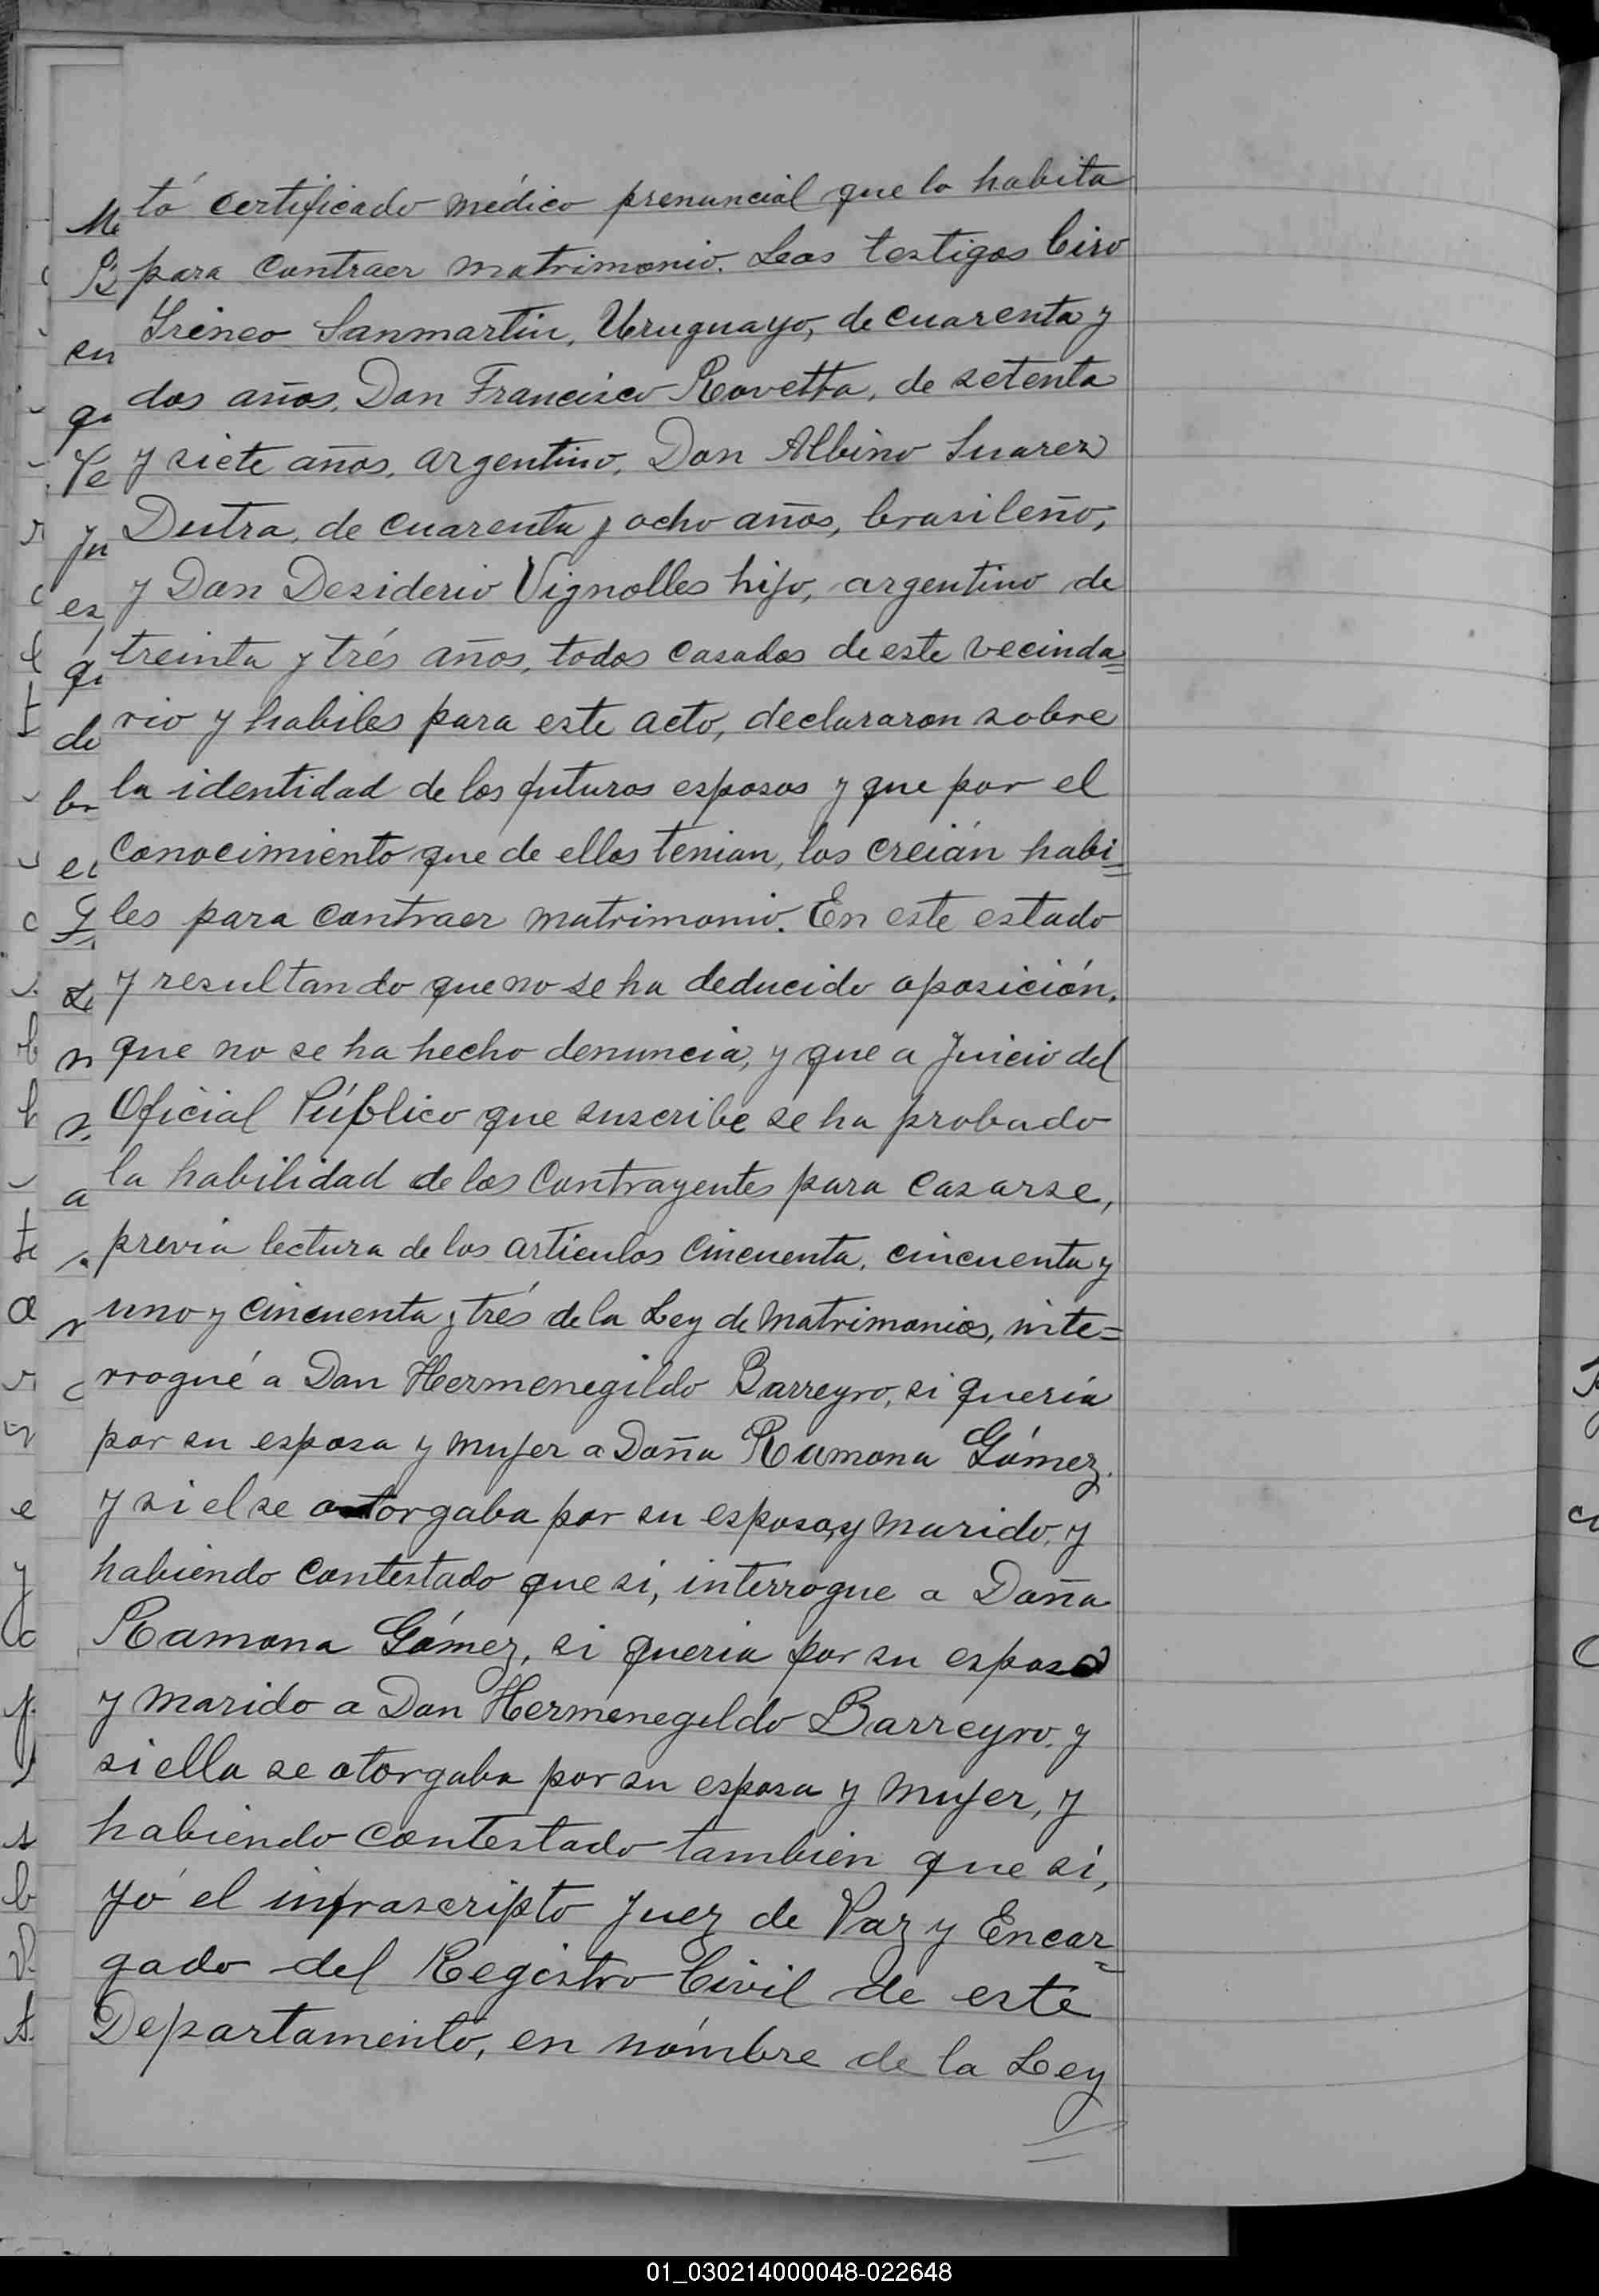 tó certificado médico prenuncial que lo habita
para contraer matrimonio. Los testigos Ciro
Irineo Sanmartin, Uruguayo, de cuarenta y
dos años, Don Francisco Rovetta, de setenta
y siete años, argentino, Don Albino Suarez
Dutra, de cuarenta y ocho años, brasileño,
y Don Desiderio Vignolles hijo, argentino de
treinta y trés años, todos casados de este vecinda=
rio y habiles para este acto, declararon sobre
la identidad de los futuros esposos y que por el
conocimiento que de ellos tenian, los creián habi=
les para contraer matrimonio. En este estado
y resultando que no se ha deducido oposición,
que no se ha hecho denuncia, y que a juicio del
Oficial Público que suscribe se ha probado
la habilidad de los contrayentes para casarse,
previa lectura de los articulos cincuenta, cincuenta y
uno y cincuenta y trés de la Ley de Matrimonios, inte=
rrogué a Don Hermenegildo Barreyro, si queria
por su esposa y mujer a Doña Ramona Gómez,
y si el se otorgaba por su esposo, y marido, y
habiendo contestado que si, interrogue a Doña
Ramona Gómez, si queria por su esposo
y marido a Don Hermenegildo Barreyro, y
si ella se otorgaba por su esposa y mujer, y
habiendo contestado tambien que si,
yó el infrascripto Juez de Paz y Encar=
gado del Registro Civil de este
Departamento, en nómbre de la Ley
01_030214000048-022648